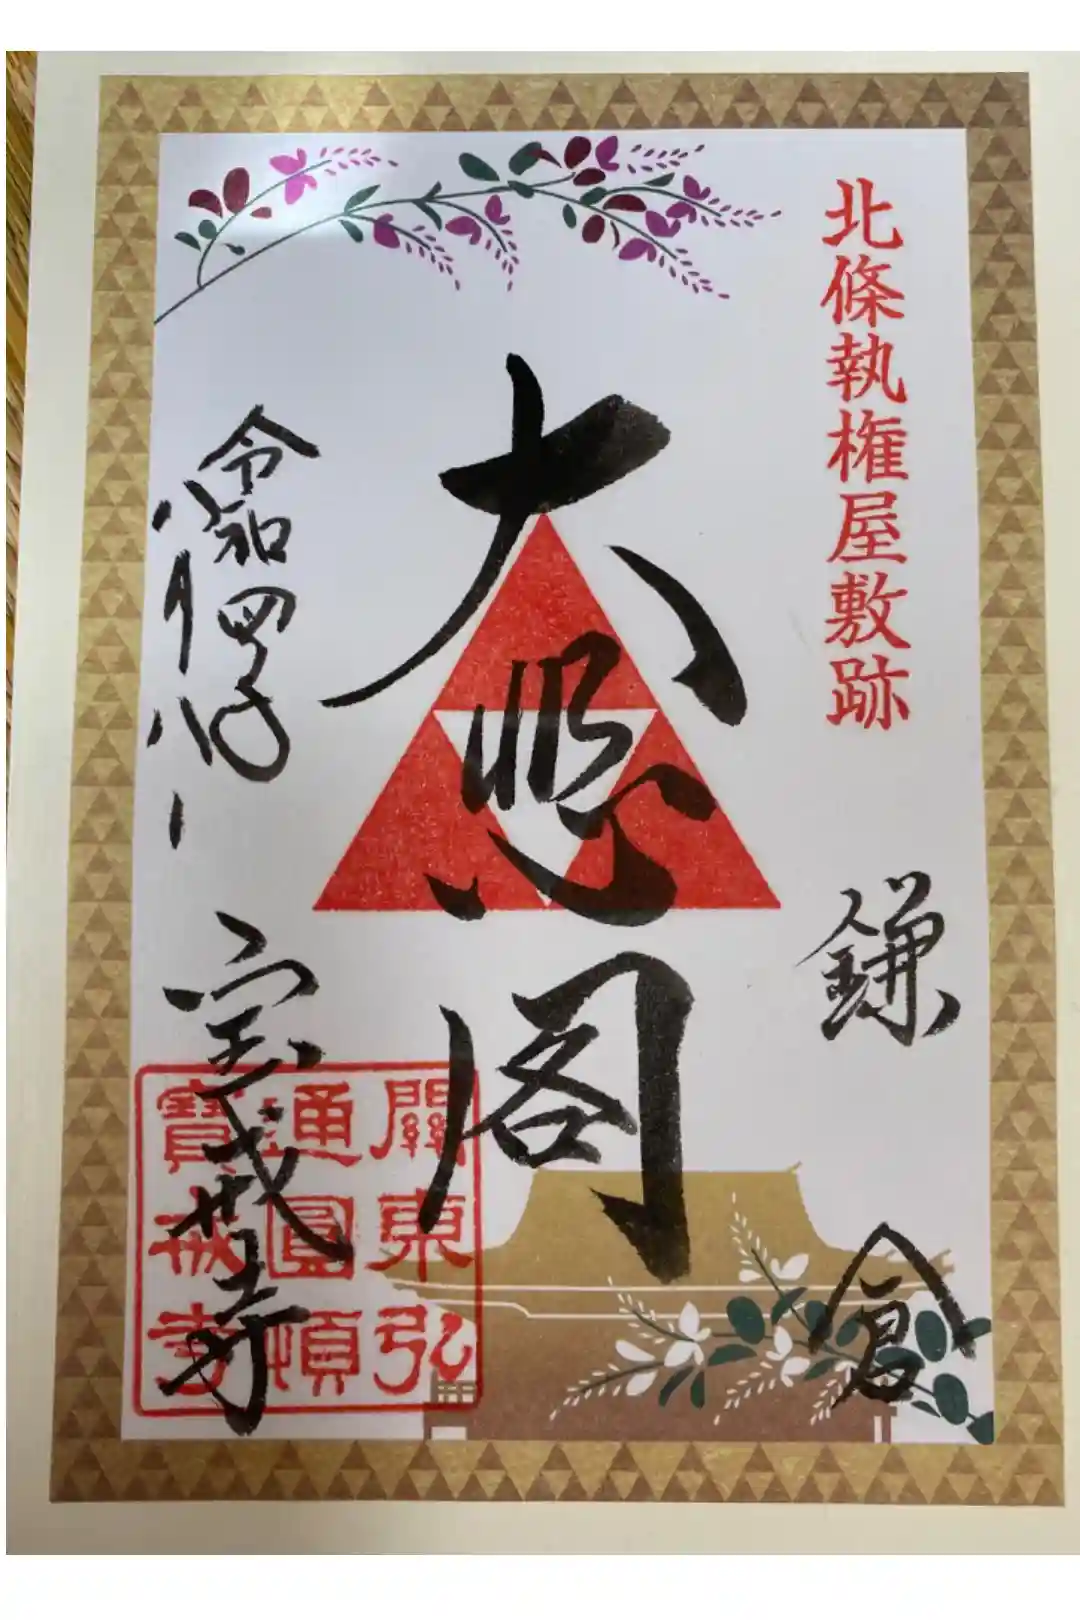 北條執権屋敷跡
鎌倉
大悲閣
令和四年
宝戒寺
關東弘
通圓頓
寶戒寺